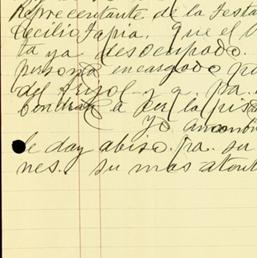 Representante de la Testa
Cecilio Tapia, que el
ta ya desocupado.
persona encargado pa
del frijol y a. pa.
a ver la
Yo
le doy abiso. pa. su
nes. su mas atout